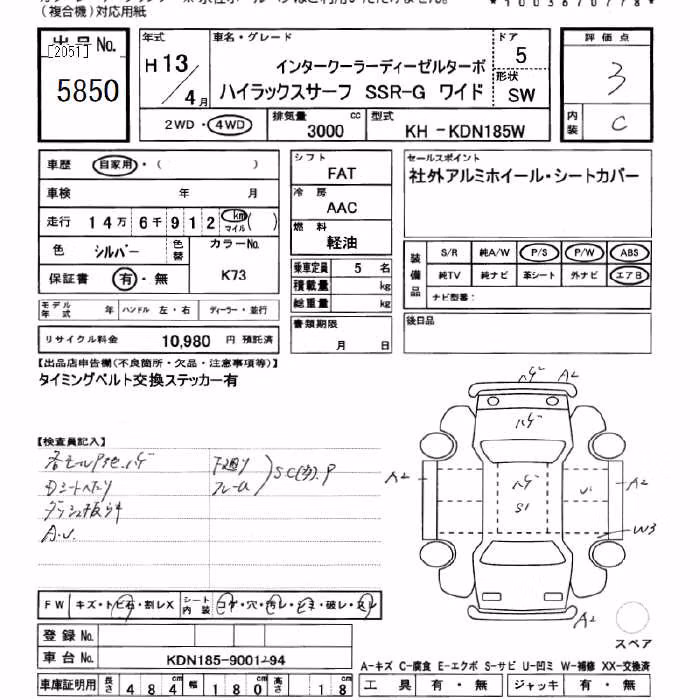 (複合機)対応用紙
出品No.
[2051]
5850
年式
H13/4月
車名・グレード
インタークーラーディーゼルターボ
ハイラックスサーフ SSR-G ワイド
ドア
5
形状
SW
2WD・4WD
排気量
3000 cc
型式
KH-KDN185W
評価点
3
内装
C
車歴 自家用・( )
車検 年 月
走行 14万6千912 km マイル( )
色 シルバー 色替
カラーNo.
K73
保証書 有・無
モデル年式 年 ハンドル 左・右 ディーラー・並行
リサイクル料金 10,980 円 預託済
シフト
FAT
冷房
AAC
燃料
軽油
乗車定員 5 名
積載量 kg
総重量 kg
書類期限
月 日
セールスポイント
社外アルミホイール・シートカバー
装備品
S/R 純A/W P/S P/W ABS
純TV 純ナビ 革シート 外ナビ エアB
ナビ型番:
後日品
【出品店申告欄(不良箇所・欠品・注意事項等)】
タイミングベルト交換ステッカー有
【検査員記入】
下廻り
フレーム
A.U.
FW キズ・トビ石・割レX シート内装 コゲ・穴・汚レ・シミ・破レ・スレ
登録No.
車台No. KDN185-9001294
車庫証明用 長さ 484 cm 幅 180 cm 高さ 18 cm
ハゲ A2
ハゲ
A2
ハゲ
S1
U1
A2
W3
A2
スペア
A-キズ C-腐食 E-エクボ S-サビ U-凹ミ W-補修 XX-交換済
工具 有・無 ジャッキ 有・無